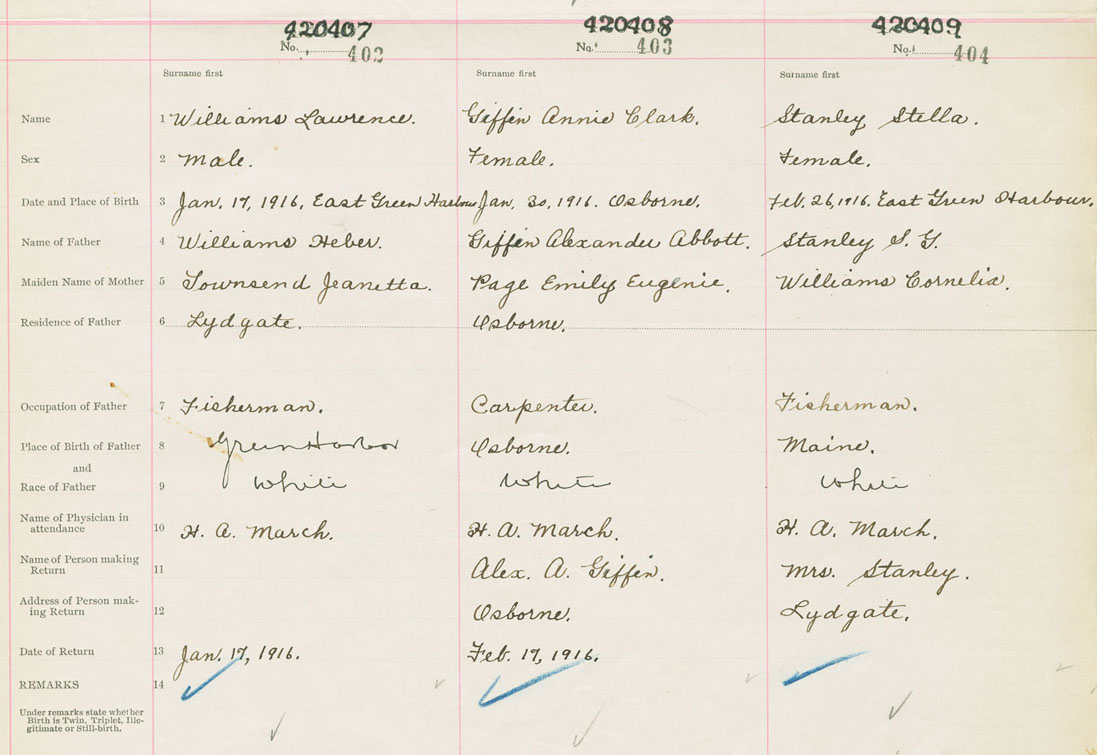 420407 420408 420409
No. 402 No. 403 No. 404
Surname first Surname first Surname first
Name 1 Williams Lawrence. Giffin Annie Clark. Stanley Stella.
Sex 2 Male. Female. Female.
Date and Place of Birth 3 Jan. 17, 1916, East Green Harbour Jan. 30, 1916. Osborne. Feb. 26, 1916. East Green Harbour.
Name of Father 4 Williams Heber. Giffin Alexander Abbott. Stanley S. G.
Maiden Name of Mother 5 Townsend Jeanetta. Page Emily Eugenie. Williams Cornelia.
Residence of Father 6 Lydgate. Osborne.
Occupation of Father 7 Fisherman. Carpenter. Fisherman.
Place of Birth of Father 8 Green Harbor Osborne. Maine.
and
Race of Father 9 White White White
Name of Physician in
attendance 10 H. A. March. H. A. March. H. A. March.
Name of Person making
Return 11 Alex. A. Giffin. Mrs. Stanley.
Address of Person mak-
ing Return 12 Osborne. Lydgate.
Date of Return 13 Jan. 17, 1916. Feb. 17, 1916.
REMARKS 14
Under remarks state whether
Birth is Twin, Triplet, Ille-
gitimate or Still-birth.